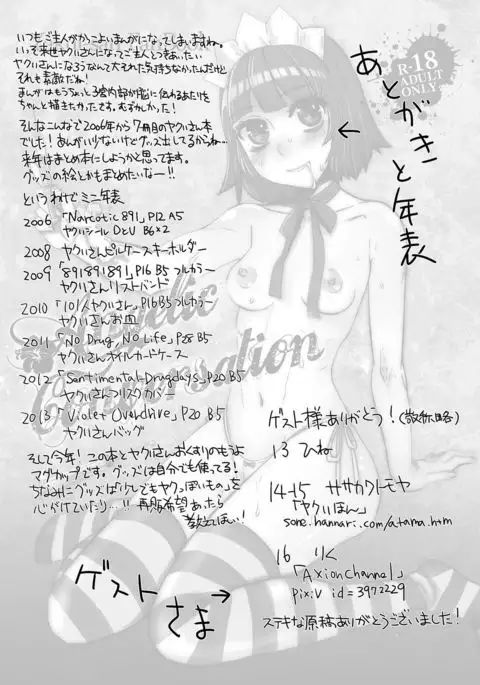 あとがきと年表
R-18
ADULT
ONLY
いつもご主人がかっこよいまんがになってしまいますね。
いっそ来世ヤクいさんになってご主人とつきあいたい
ヤクいさんになろうなんて大それた気持ちなかったんだけど
それも素敵だね!
まんがはもうちょっと
ちゃんと描きたかったです。むずかしかった!
そんなこんなで2006年から7冊目のヤクいさん本
でした!まんがいりないけどグッズ出してるからね…
来年はまとめ本にしようかと思ってます。
グッズの絵とかもまとめたいなー!!
というわけでミニ年表
2006 「Narcotic891」P12 A5
ヤクいシール DとU B6×2
2008 ヤクいさんピルケースキーホルダー
2009 「891891891」P16 B5 フルカラー
ヤクいさんリストバンド
2010 「101人ヤクいさん」P16 B5 フルカラー
ヤクいさんお皿
2011 「No Drug, No Life」P28 B5
ヤクいさんオイルカードケース
2012 「Sentimental Drugdays」P20 B5
ヤクいさんフリスクカバー
2013 「Violet Overdrive」P20 B5
ヤクいさんバッグ
そして今年!この本とヤクいさんおくすりのもうよ
マグカップです。グッズは自分でも使ってる!
ちなみにグッズは「少しでもヤクっぽいもの」を
心がけていたり…!!再販希望あったら
教えてほしい!
Conversation
ゲスト様ありがとう!(敬称略)
13 ひね
14-15 ササカワトモヤ
「ヤクいほん」
sore.hannari.com/atama.htm
16 りく
「AXionChannel」
pixiv id=3972229
ステキな原稿ありがとうございました!
ゲストさま